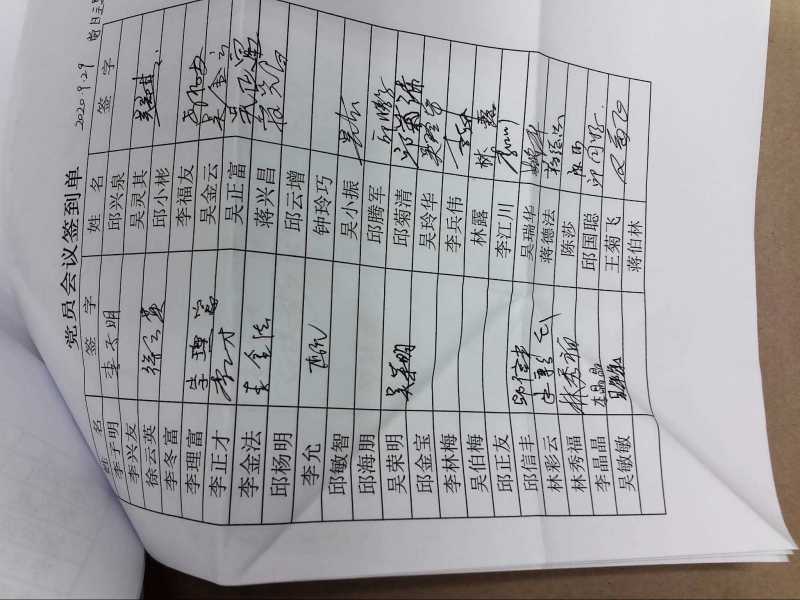 2020 9.29 党日主题
党员会议签到单
姓名 签字 姓名 签字
李子明 李子明 邱兴泉
李兴友 吴灵其
徐云英 徐云英 邱小彬
李冬富 李福友
李理富 李理富 吴金云 吴金云
李正才 李正才 吴正富
李金法 李金法 蒋兴昌
邱杨明 邱云增
李允 李允 钟玲巧
邱敏智 吴小振
邱海朋 邱腾军 邱腾军
吴荣明 吴荣明 邱菊清 邱菊清
邱金宝 吴玲华 吴玲华
李林梅 李兵伟
吴伯梅 林露 林露
邱正友 李江川 李江川
邱信丰 邱信丰 吴瑞华
林彩云 蒋德法
林秀福 林秀福 陈莎
李晶晶 李晶晶 邱国聪
吴敏敏 吴敏敏 王菊飞
蒋伯林